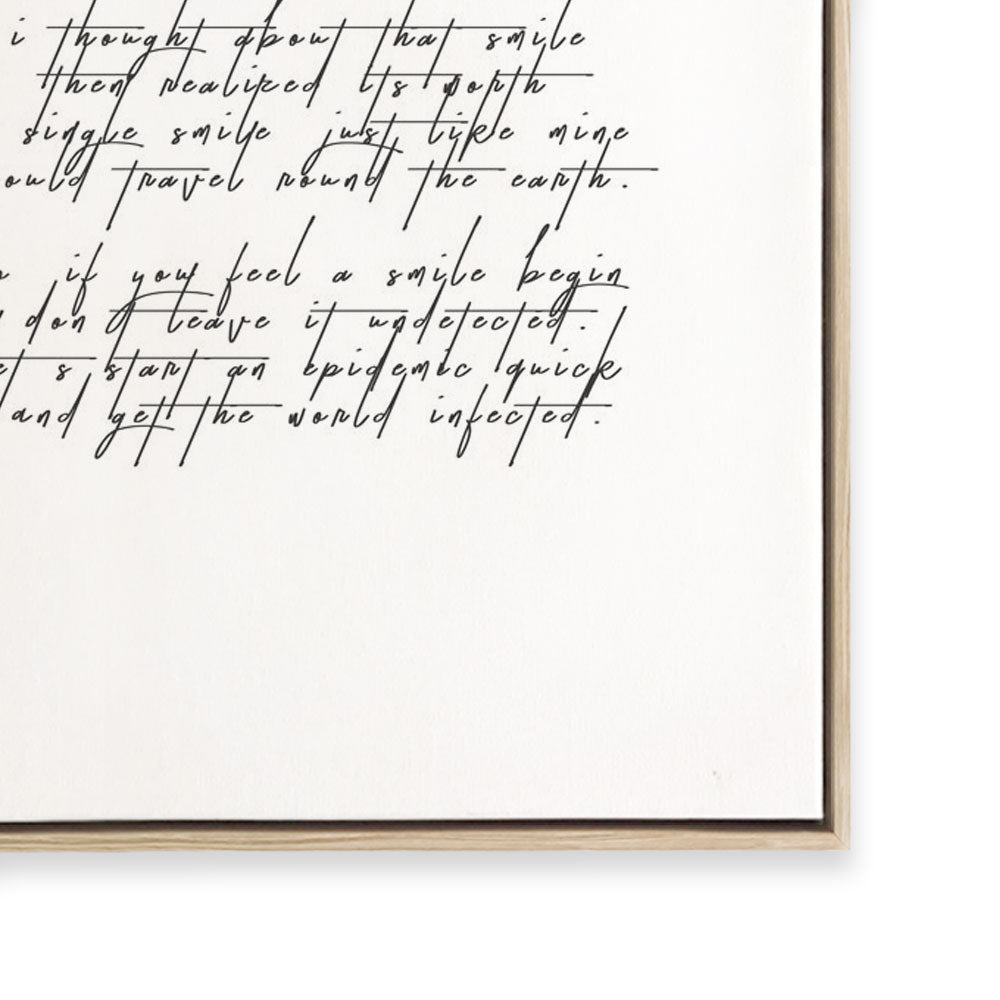 i thought about that smile
then realized its worth
single smile just like mine
ould travel round the earth.
if you feel a smile begin
don t leave it undetected.
et s start an epidemic quick
and get the world infected.